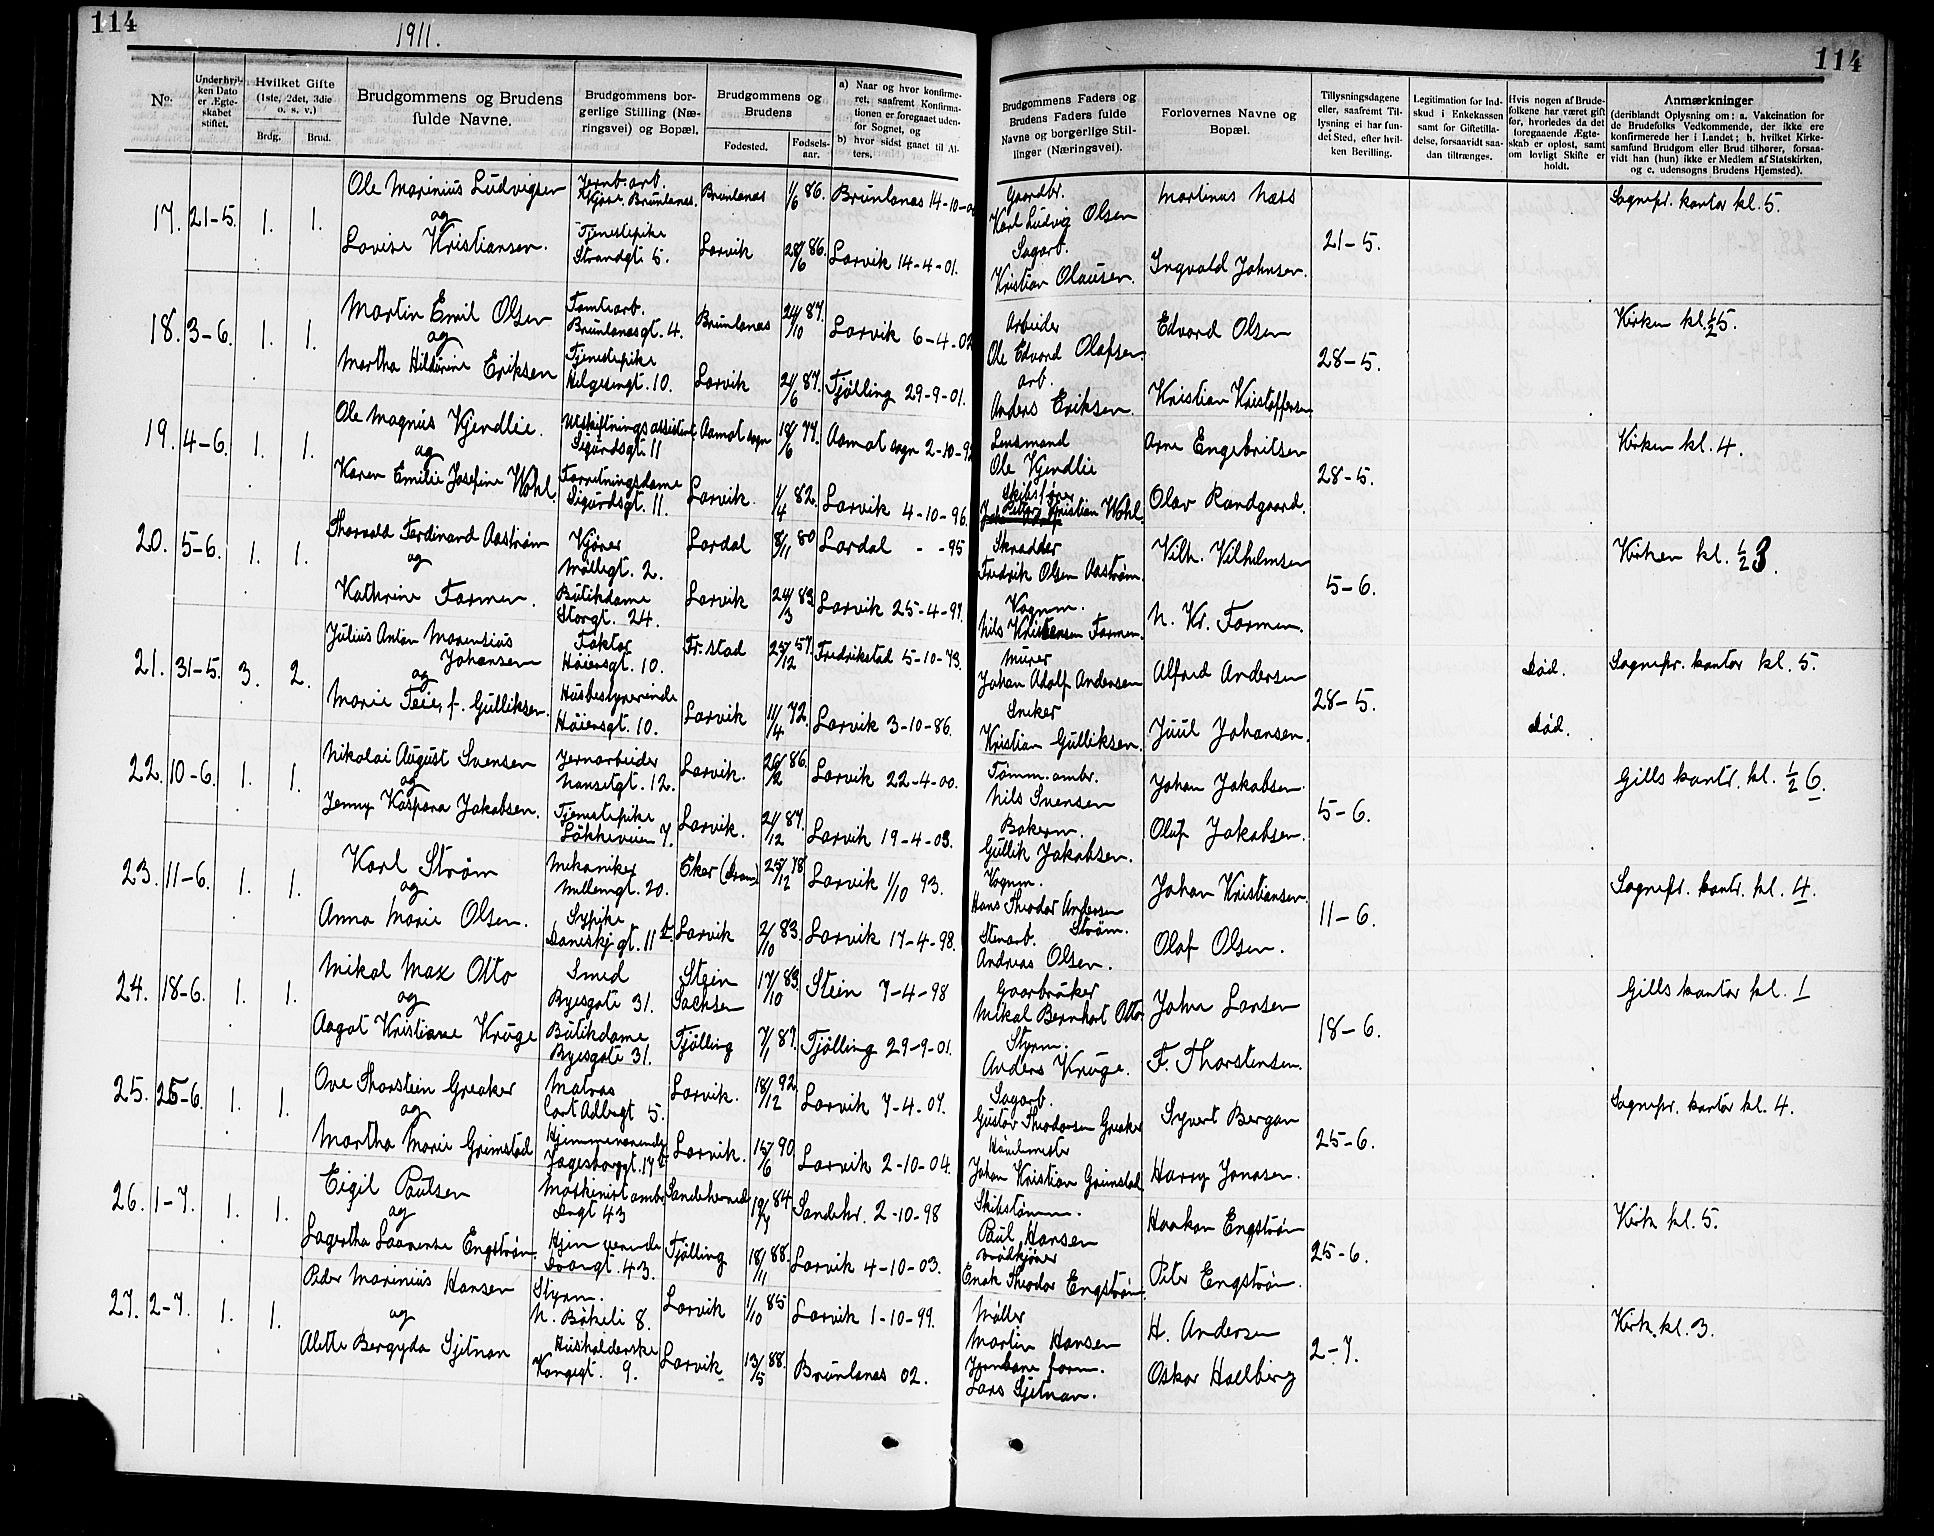 114
1911.
114
No.
Underhvilken Dato er Ægteskabet stiftet.
Hvilket Gifte (1ste, 2det, 3die o. s. v.)
Brdg.
Brud.
Brudgommens og Brudens fulde Navne.
Brudgommens borgerlige Stilling (Næringsvei) og Bopæl.
Brudgommens og Brudens
Fødested.
Fødselsaar.
a) Naar og hvor konfirmeret, saafremt Konfirmationen er foregaaet udenfor Sognet, og
b) hvor sidst gaaet til Alters.
Brudgommens Faders og Brudens Faders fulde Navne og borgerlige Stillinger (Næringsvei).
Forlovernes Navne og Bopæl.
Tillysningsdagene eller, saafremt Tillysning ei har fundet Sted, efter hvilken Bevilling.
Legitimation for Indskud i Enkekassen samt for Giftetilladelse, forsaavidt saadan tiltrænges.
Hvis nogen af Brudefolkene har været gift før, hvorledes da det foregaaende Ægteskab er opløst, samt om lovligt Skifte er holdt.
Anmærkninger
(deriblandt Oplysning om: a. Vakcination for de Brudefolks Vedkommende, der ikke ere konfirmerede her i Landet; b. hvilket Kirkesamfund Brudgom eller Brud tilhører, forsaavidt han (hun) ikke er Medlem af Statskirken, og c. udensogns Brudens Hjemsted).
17. 21-5. 1. 1. Ole Marinius Ludvigsen Jernb. arb. Kjøse, Brunlanes. Brunlanes 1/6 86. Brunlanes 14-10-00 Gaardbr. Karl Ludvig Olsen Martinus Næss 21-5. Sognepr. kontor kl. 5.
og
Lovise Kristiansen. Tjenestepike Strandgt 5. Larvik 28/6 86. Larvik 14-4-01. Sagarb. Kristian Olausen. Ingvald Johnsen.
18. 3-6. 1. 1. Martin Emil Olsen Tomtearb. Brunlanesgt. 4. Brunlanes 24/10 87. Larvik 6-4-02 Arbeider Ole Edvard Olafsen Edvard Olsen 28-5. Kirken kl. 1/2 5.
og
Martha Hildurine Eriksen Tjenestepike Helgesengt. 10. Larvik 21/6 87. Tjølling 29-9-01. arb. Anders Eriksen. Kristian Kristoffersen
19. 4-6. 1. 1. Ole Magnus Kjendlie. Utskiftningsassistent Sigurdsgt 11 Aamot sogn 18/6 77. Aamot sogn 2-10-92 Lensmand Ole Kjendlie Arne Engebritsen 28-5. Kirken kl. 4.
og
Karen Emilie Josefine Wohl. Forretningsdame Sigurdsgt. 11. Larvik. 1/4 82. Larvik 4-10-96. Skibsfører Peter Kristian Wohl. Olav Randgaard.
20. 5-6. 1. 1. Thorvald Ferdinand Aastrøm Kjører Møllegt. 2. Lardal 8/11 80 Lardal - -95 Skrædder Fredrik Olsen Aastrøm. Vilh. Vilhelmsen 5-6. Kirken kl. 1/2 3.
og
Kathrine Farmen. Butikdame Storgt. 24. Larvik 24/3 83. Larvik 25-4-97. Vognm. Nils Kristensen Farmen. N. Kr. Farmen.
21. 31-5. 3. 2. Julius Anton Marensius Johansen Faktor Høiensgt. 10. Fr.stad 25/12 57. Fredrikstad 5-10-73. Murer Johan Adolf Andersen Alfred Andersen 28-5. død. Sognepr. kontor kl. 5.
og
Marie Feier, f. Gulliksen. Husbestyrerinde Høiensgt. 10. Larvik 11/4 72. Larvik 3-10-86. Sneker Kristian Gulliksen. Juul Johansen. død.
22. 10-6. 1. 1. Nikolai August Svensen Jernarbeider Nansetgt. 12. Larvik. 26/2 86. Larvik 22-4-00. Tømm.ambr. Nils Svensen Johan Jakobsen. 5-6. Gills kontr. kl. 1/2 6.
og
Jenny Kaspara Jakobsen. Tjenestepike Løkkeveien 7. Larvik. 21/12 87. Larvik 19-4-03. Bakerm. Gullik Jakobsen. Olaf Jakobsen.
23. 11-6. 1. 1. Karl Strøm Mekaniker Mellemgt. 20. Eker (Dram) 25/12 78 Larvik 1/10 93. Vognm. Hans Theodor Andersen Strøm. Johan Kristiansen. 11-6. Sognepr. kontr. kl. 4.
og
Anna Marie Olsen. Sypike Daneskj.gt. 11 b. Larvik 2/10 83. Larvik 17-4-98. Stenarb. Andreas Olsen. Olaf Olsen.
24. 18-6. 1. 1. Mikal Max Otto Smed Byesgate 31. Stein Sachsen 17/10 83. Stein 7-4-98 Gaarbruker Mikal Bernhart Otto John Larsen 18-6. Gills kontor kl. 1
og
Aagot Kristiane Kruge Butikdame Byesgate 31. Tjølling 7/1 87. Tjølling 29-9-01. Styrm. Anders Kruge. F. Thorstensen.
25. 25-6. 1. 1. Ove Thorstein Greaker Matros Cort Adlergt 5. Larvik. 18/12 92 Larvik 7-4-07. Sagarb. Gustav Theodorsen Greaker Syvert Bergan 25-6. Sognepr. kontor kl. 4.
og
Martha Marie Grimstad Hjemmeværende Jagesborggt. 17 b Larvik. 15/6 90. Larvik 2-10-04. Johan Kristian Grimstad Harry Jonasen.
26. 1-7. 1. 1. Eigil Paulsen Maskinist ambr. 43 Sandeherred 19/4 84 Sandehr. 2-10-98 Skibstømm. Paul Hansen Haakon Engstrøm 25-6. Kirk kl. 5.
og
Lagertha Laarense Engstrøm. Hjemværende 43. Tjølling 18/11 88. Larvik 4-10-03. Brødkjører Enok Theodor Engstrøm. Peter Engstrøm.
27. 2-7. 1. 1. Peder Marinius Hansen Styrm. N. Bøkeli 8. Larvik 1/10 85 Larvik 1-10-99. Møller Martin Hansen H. Andersen 2-7. Kirk. kl. 3.
og
Alette Bergyda Sjetnan Husholderske Kongegt. 9. Larvik 13/5 88. Brunlanes 02. Jernbane form. Lars Sjetnan. Oskar Hallberg